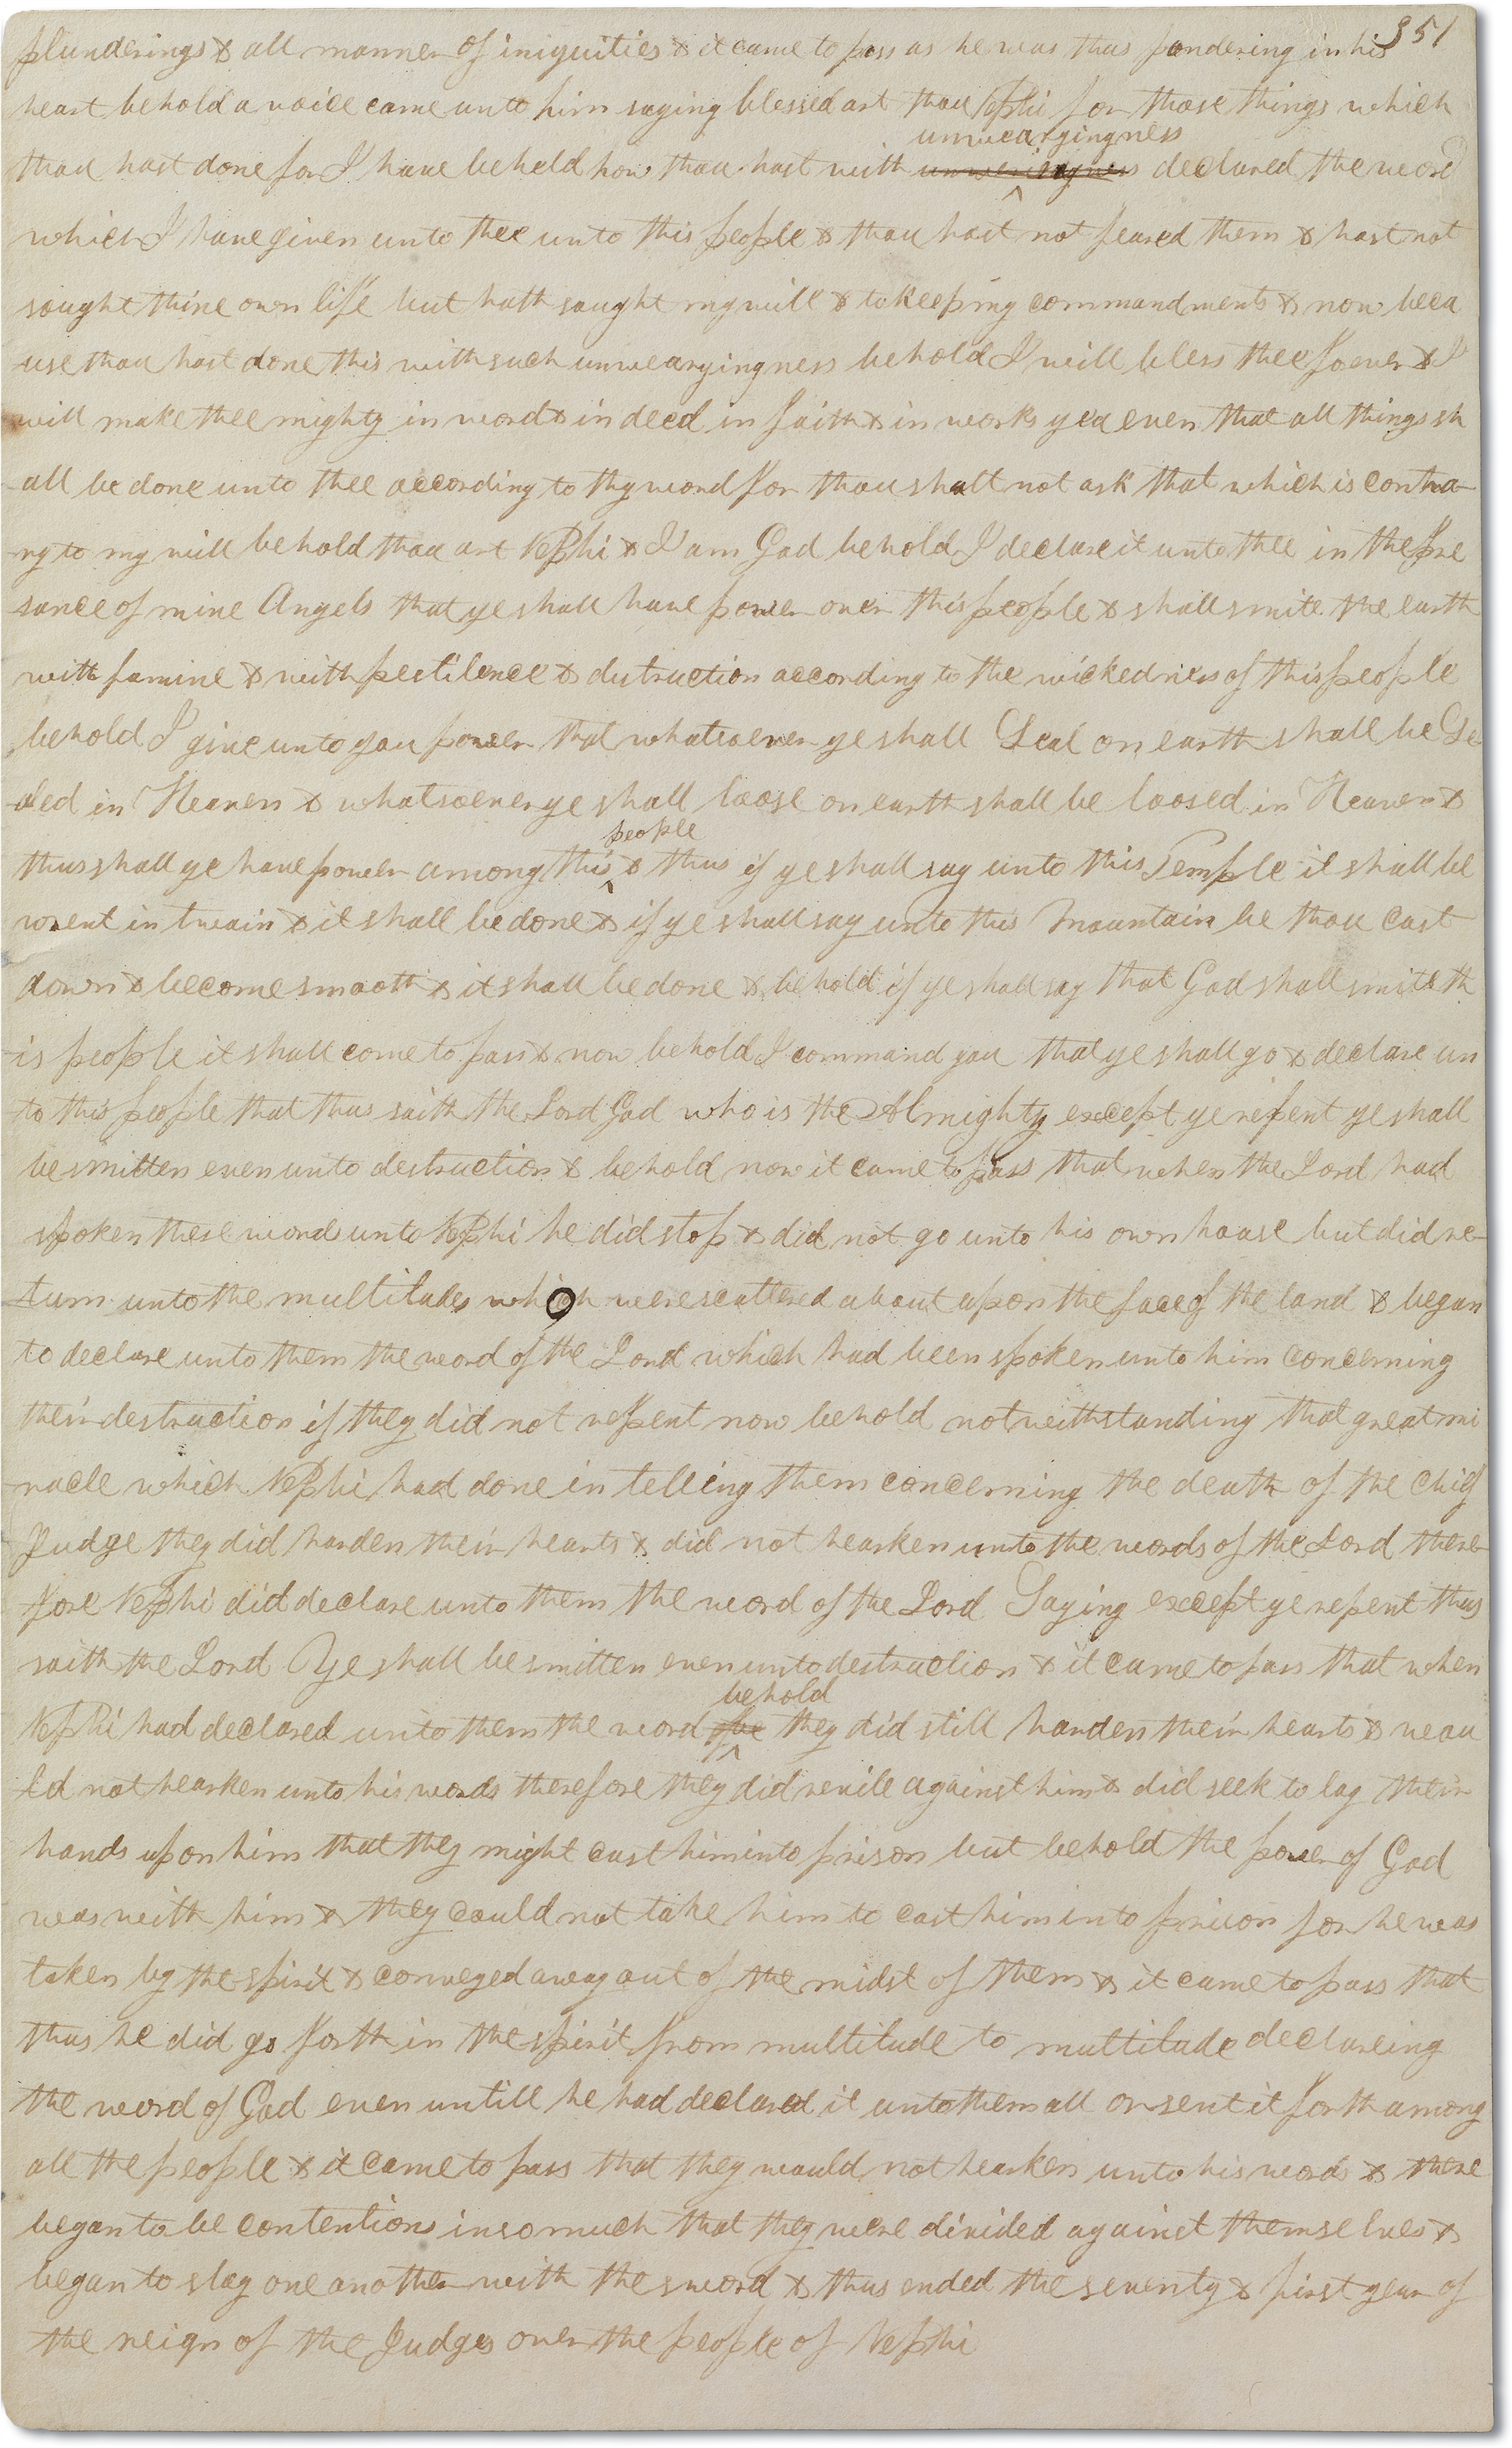 351
plunderings & all manner of iniquities & it came to pass as he was thus pondering in his
heart behold a voice came unto him saying blessed art thou Nephi for those things which
unwearyingness
thou hast done for I have beheld how thou hast with declared the word
which I have given unto thee unto this people & thou hast not feared them & hast not
sought thine own life but hath sought my will & to keep my commandments & now beca
use thou hast done this with such unwearyingness behold I will bless thee forever & I
will make thee mighty in word & in deed in faith & in works yea even that all things sh
all be done unto thee according to thy word for thou shalt not ask that which is contra-
ry to my will behold thou art Nephi & I am God behold I declare it unto thee in the pre
sance of mine Angels that ye shall have power over this people & shall smite the earth
with famine & with pestilence & distruction according to the wickedness of this people
behold I give unto you power that whatsoever ye shall Seal on earth shall be Se
aled in Heaven & whatsoever ye shall loose on earth shall be loosed in Heaven &
people
thus shall ye have power among this ^ & thus if ye shall say unto this Temple it shall be
wrent in twain & it shall be done & if ye shall say unto this Mountain be thou cast
down & become smooth & it shall be done & behold if ye shall say that God shall smite th
is people it shall come to pass & now behold I command you that ye shall go & declare un
to this people that thus saith the Lord God who is the Almighty except ye repent ye shall
be smitten even unto destruction & behold now it came to pass that when the Lord had
spoken these words unto Nephi he did stop & did not go unto his own house but did re-
turn unto the multitudes which were scattered about upon the face of the land & began
to declare unto them the word of the Lord which had been spoken unto him concerning
their destruction if they did not repent now behold notwithstanding that great mi
racle which Nephi had done in telling them concerning the death of the chief
Judge they did harden their hearts & did not hearken unto the words of the Lord there-
fore Nephi did declare unto them the word of the Lord Saying except ye repent thus
saith the Lord Ye shall be smitten even unto destruction & it came to pass that when
behold
Nephi had declared unto them the word ^ they did still harden their hearts & wou
ld not hearken unto his words therefore they did revile against him & did seek to lay their
hands upon him that they might cast him into prison but behold the power of God
was with him & they could not take him to cast him into prison for he was
taken by the spirit & conveyed away out of the midst of them & it came to pass that
thus he did go forth in the spirit from multitude to multitude declareing
the word of God even untill he had declared it unto them all or sent it forth among
all the people & it came to pass that they would not hearken unto his words & there
began to be contentions insomuch that they were divided against themselves &
began to slay one another with the sword & thus ended the seventy & first year of
the reign of the Judges over the people of Nephi